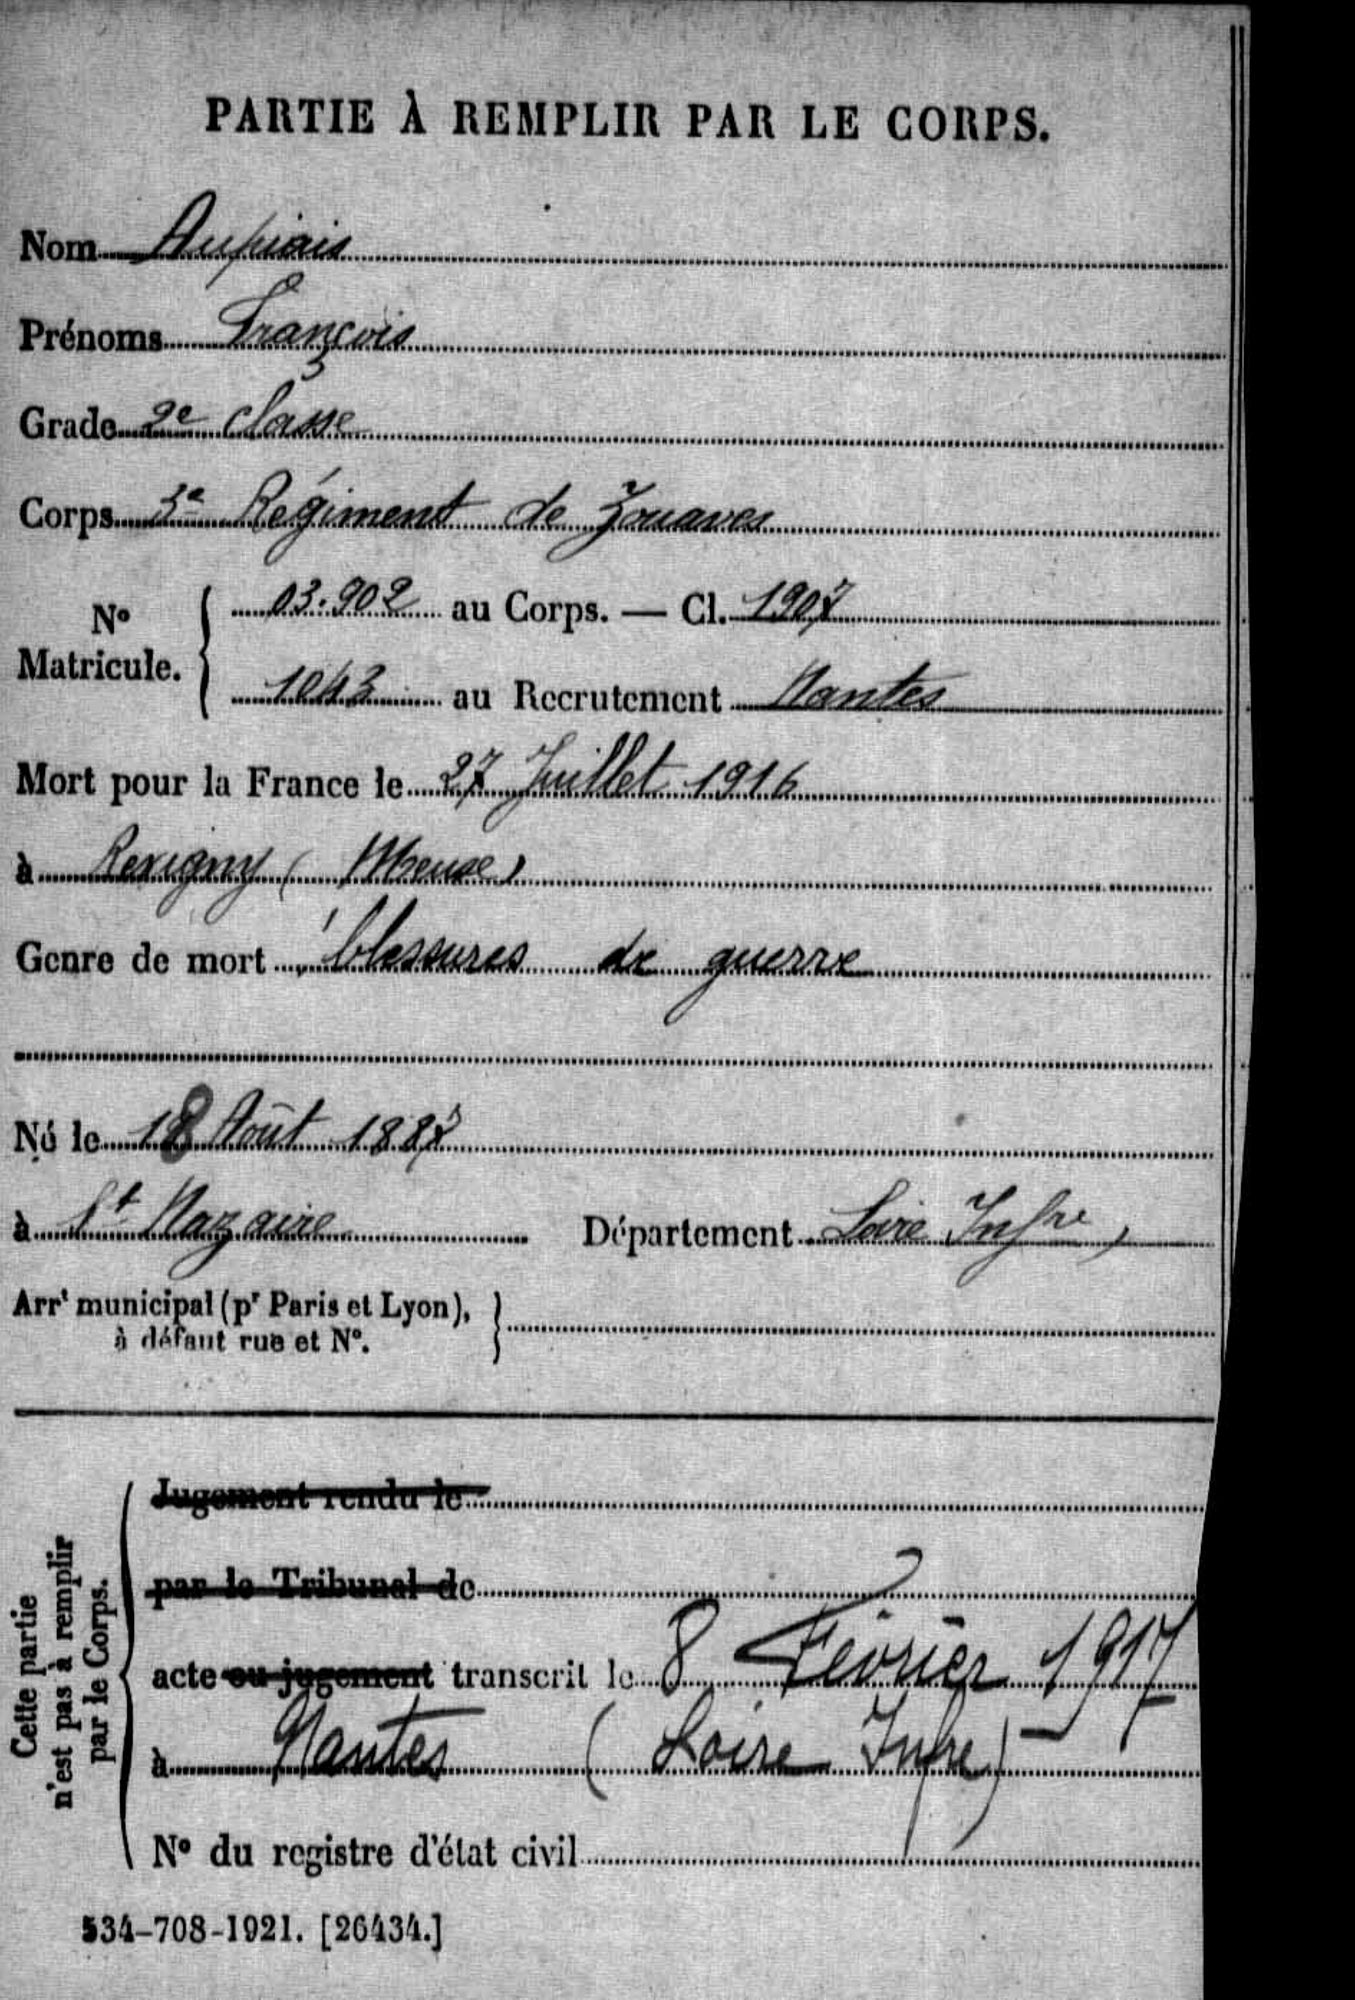 PARTIE À REMPLIR PAR LE CORPS.
Nom Aupiais
Prénoms François
Grade 2e classe
Corps 3e Régiment de Zouaves
No Matricule. { 03.902 au Corps. — Cl. 1907
1043 au Recrutement Nantes
Mort pour la France le 27 Juillet 1916
à Revigny (Meuse)
Genre de mort blessures de guerre
Né le 18 Août 1887
à St Nazaire Département Loire Infre
Arrt municipal (pr Paris et Lyon),
à défaut rue et No.
Cette partie
n'est pas à remplir
par le Corps.
Jugement rendu le
par le Tribunal de
acte ou jugement transcrit le 8 Février 1917
à Nantes (Loire Infre)
No du registre d'état civil
534-708-1921. [26434.]